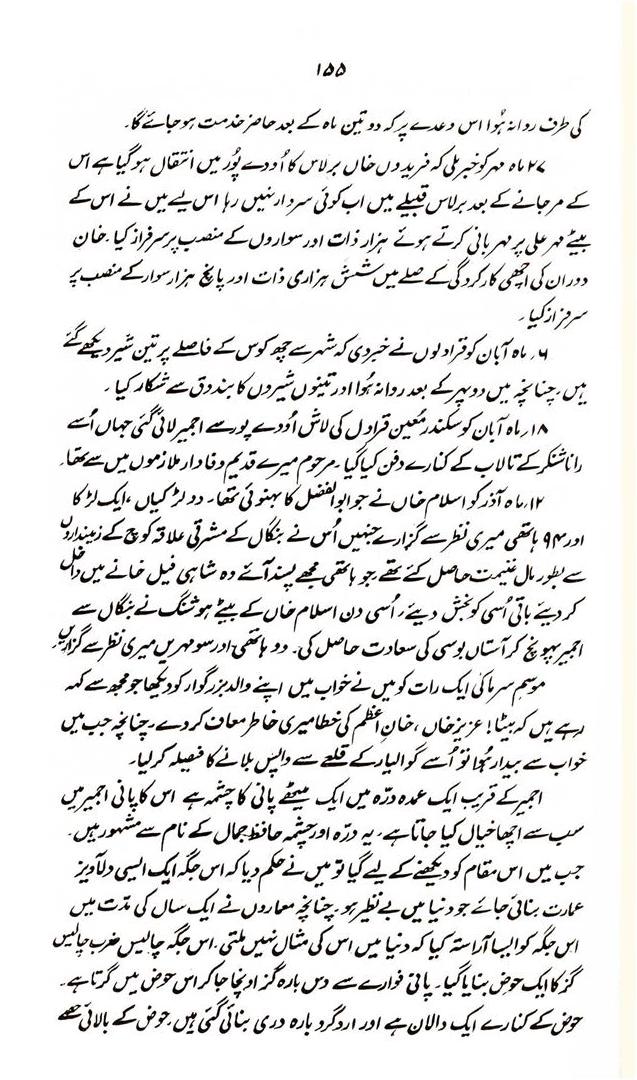 ۱۵۵
کی طرف روانہ ہُوا اس وعدے پر کہ دو تین ماہ کے بعد حاضر خدمت ہو جائے گا۔
۲۷ ماہ مہر کو خبر ملی کہ فریدوں خاں برلاس کا اُودے پُور میں انتقال ہو گیا ہے اس
کے مر جانے کے بعد برلاس قبیلے میں اب کوئی سردار نہیں رہا اس لیے میں نے اس کے
بیٹے مہر علی پر مہربانی کرتے ہوئے ہزار ذات اور سواروں کے منصب پر سرفراز کیا۔ خان
دوران کی اچھی کارکردگی کے صلے میں شش ہزاری ذات اور پانچ ہزار سوار کے منصب پر
سرفراز کیا۔
۶۔ ماہ آبان کو قراولوں نے خبر دی کہ شہر سے چھ کوس کے فاصلے پر تین شیر دیکھے گئے
ہیں، چنانچہ میں دوپہر کے بعد روانہ ہُوا اور تینوں شیروں کا بندوق سے شکار کیا۔
۱۸۔ ماہ آبان کو سکندر معین قراول کی لاش اُودے پور سے اجمیر لائی گئی جہاں اُسے
رانا شنکر کے تالاب کے کنارے دفن کیا گیا۔ مرحوم میرے قدیم وفادار ملازموں میں سے تھا۔
۱۲۔ ماہ آذر کو اسلام خاں نے جو ابوالفضل کا بہنوئی تھا۔ دو لڑکیاں، ایک لڑکا
اور ۹۴ ہاتھی میری نظر سے گزارے جنہیں اُس نے بنگال کے مشرقی علاقہ کوچ کے زمینداروں
سے بطور مالِ غنیمت حاصل کئے تھے، جو ہاتھی مجھے پسند آئے وہ شاہی فیل خانے میں داخل
کر دیئے باقی اُسی کو بخش دیئے، اُسی دن اسلام خاں کے بیٹے ہوشنگ نے بنگال سے
اجمیر پہونچ کر آستاں بوسی کی سعادت حاصل کی۔ دو ہاتھی اور سو مہریں میری نظر سے گزاریں۔
موسمِ سرما کی ایک رات کو میں نے خواب میں اپنے والد بزرگوار کو دیکھا جو مجھ سے کہہ
رہے ہیں کہ بیٹا! عزیز خاں، خانِ اعظم کی خطا میری خاطر معاف کر دے، چنانچہ جب میں
خواب سے بیدار ہُوا تو اُسے گوالیار کے قلعے سے واپس بلانے کا فیصلہ کر لیا۔
اجمیر کے قریب ایک عمدہ درّہ میں ایک میٹھے پانی کا چشمہ ہے اس کا پانی اجمیر میں
سب سے اچھا خیال کیا جاتا ہے۔ یہ درّہ اور چشمہ حافظ جمال کے نام سے مشہور ہیں۔
جب میں اس مقام کو دیکھنے کے لیے گیا تو میں نے حکم دیا کہ اس جگہ ایک ایسی دلآویز
عمارت بنائی جائے جو دنیا میں بے نظیر ہو۔ چنانچہ معماروں نے ایک سال کی مدّت میں
اس جگہ کو ایسا آراستہ کیا کہ دنیا میں اس کی مثال نہیں ملتی۔ اس جگہ چالیس ضرب چالیس
گز کا ایک حوض بنایا گیا۔ پانی فوارے سے دس بارہ گز اونچا جا کر اس حوض میں گرتا ہے۔
حوض کے کنارے ایک دالان ہے اور ارد گرد بارہ دری بنائی گئی ہیں، حوض کے بالائی حصے